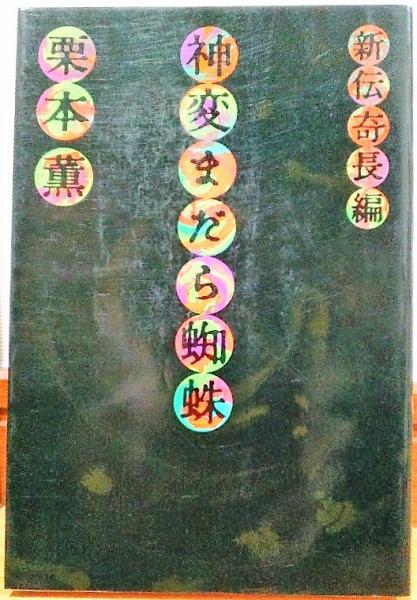 新伝奇長編
神変まだら蜘蛛
栗本薫